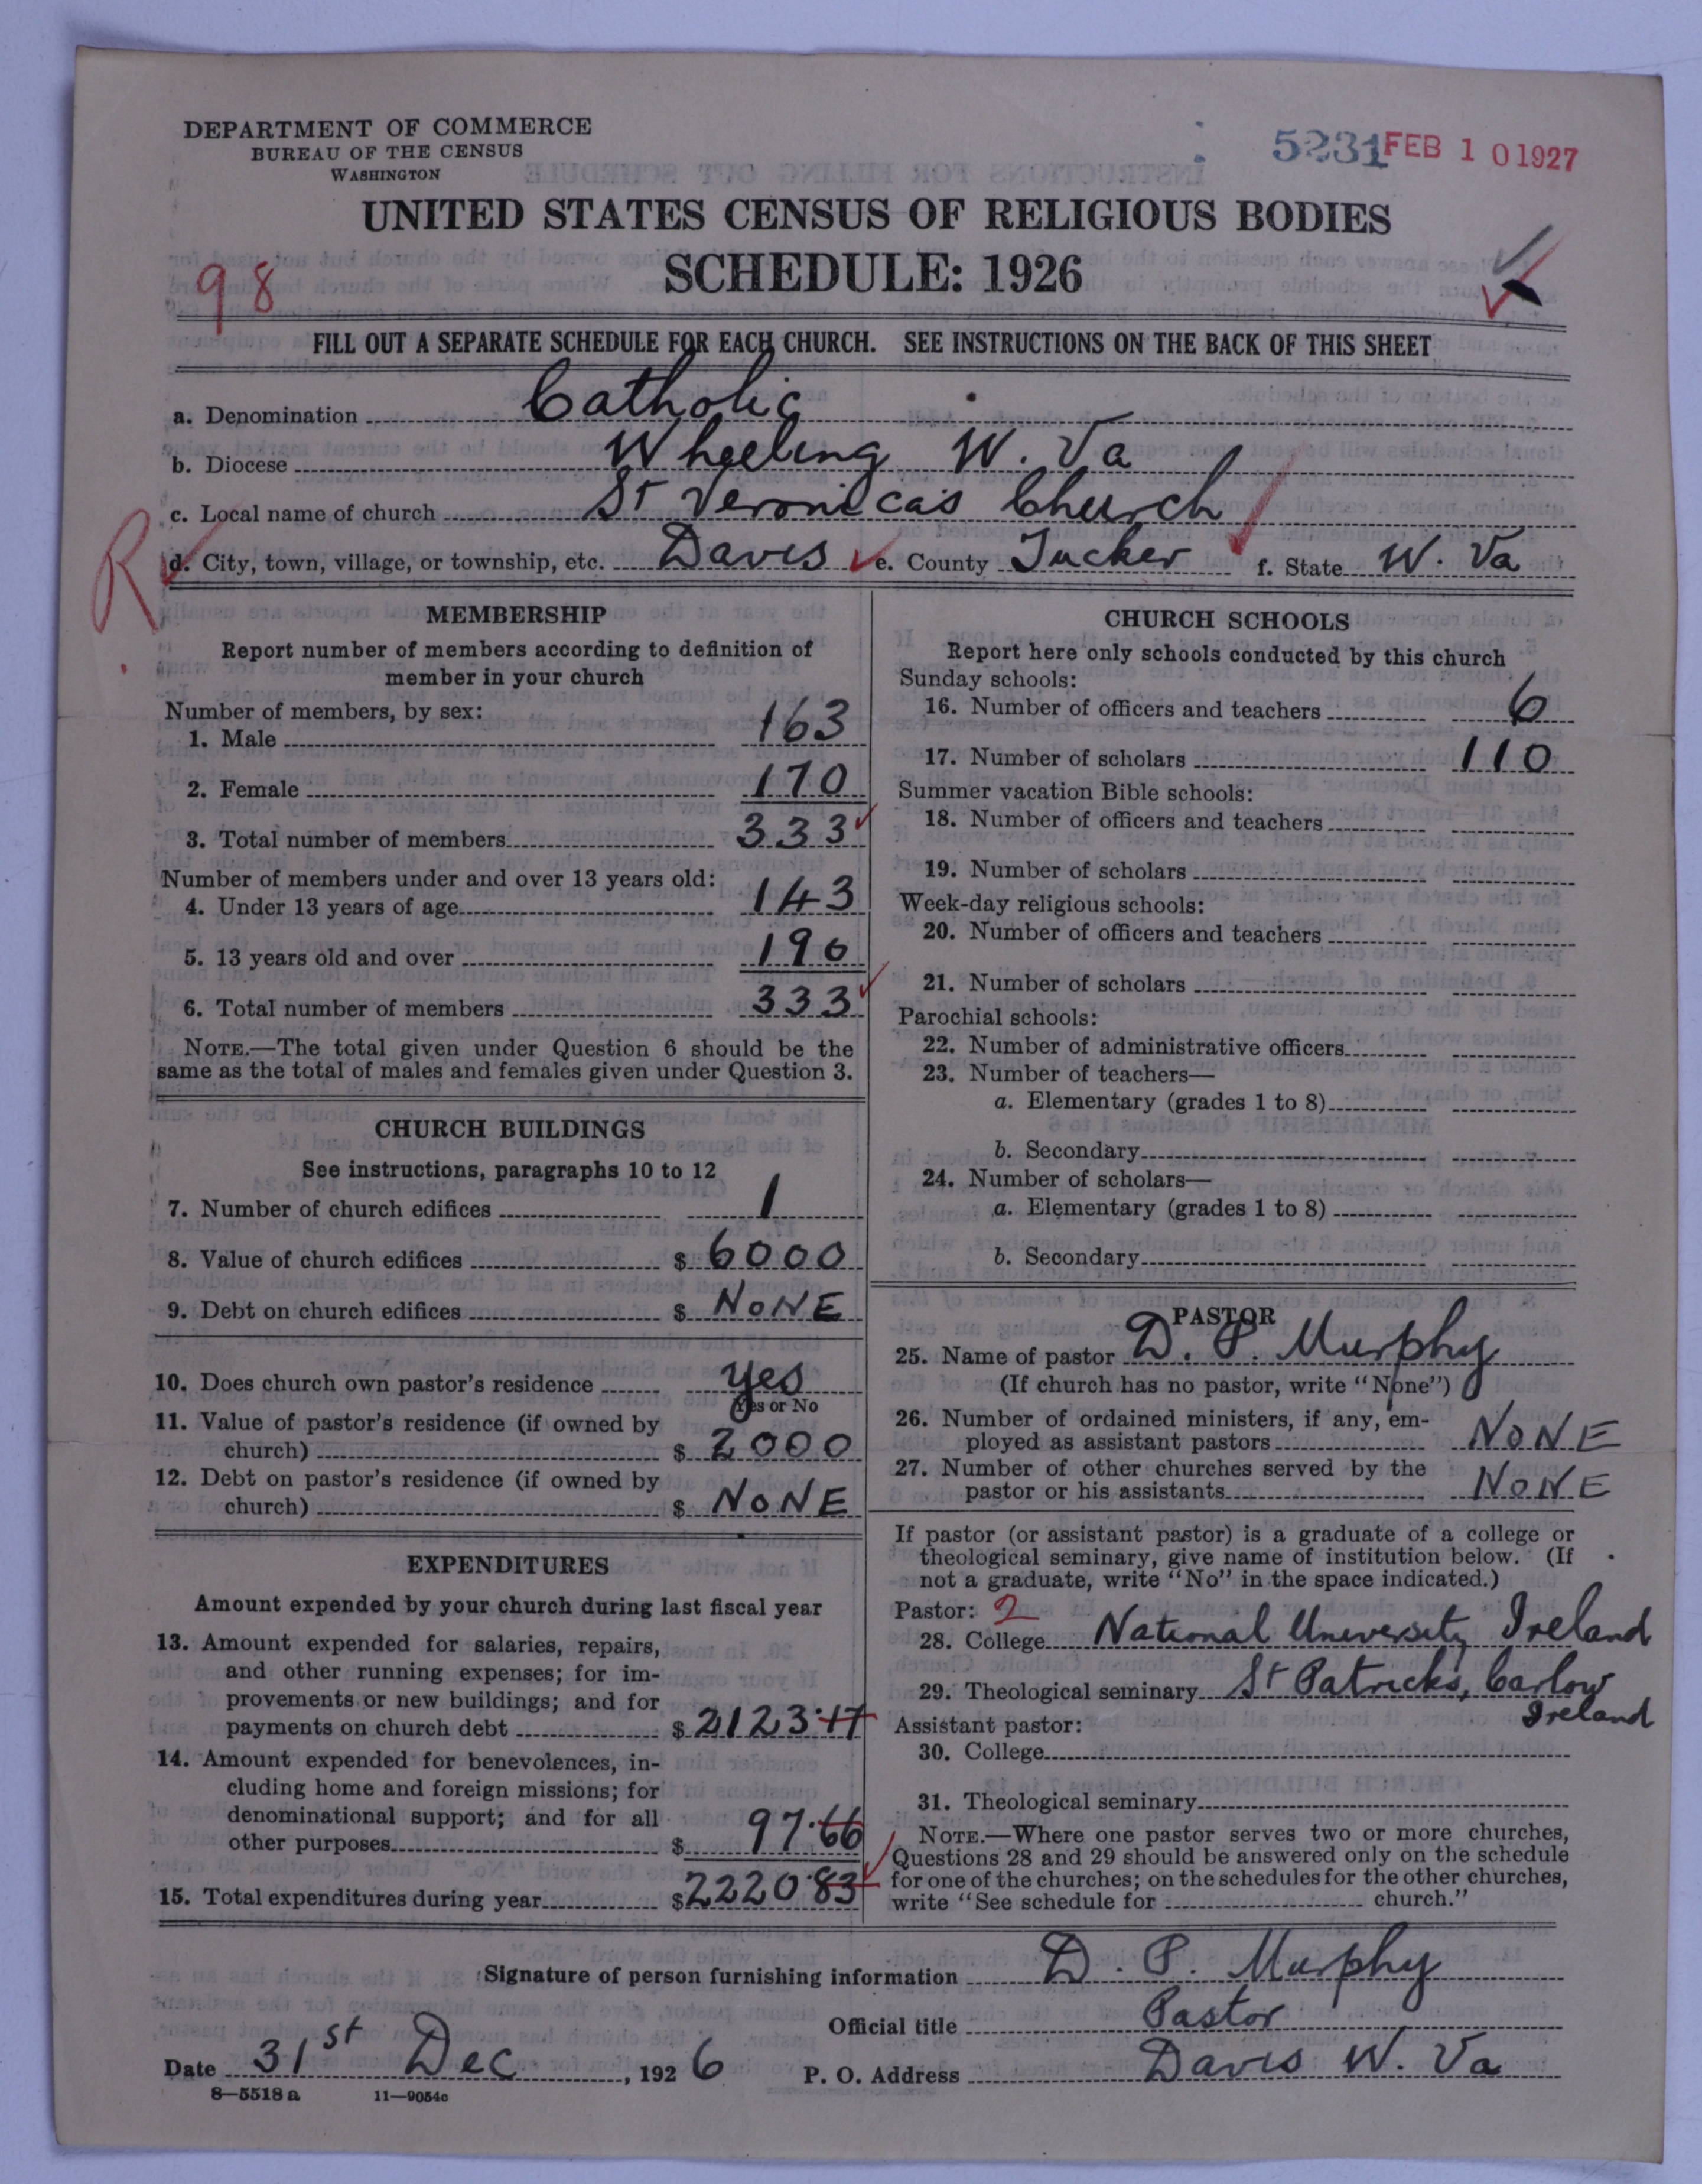 DEPARTMENT OF COMMERCE
BUREAU OF THE CENSUS
WASHINGTON
5231 FEB 10 1927
UNITED STATES CENSUS OF RELIGIOUS BODIES
SCHEDULE: 1926
98
FILL OUT A SEPARATE SCHEDULE FOR EACH CHURCH. SEE INSTRUCTIONS ON THE BACK OF THIS SHEET
a. Denomination Catholic
b. Diocese Wheeling W. Va
c. Local name of church St Veronica's Church
R
d. City, town, village, or township, etc. Davis e. County Tucker f. State W. Va
MEMBERSHIP
Report number of members according to definition of
member in your church
Number of members, by sex:
1. Male 163
2. Female 170
3. Total number of members 333
Number of members under and over 13 years old:
4. Under 13 years of age 143
5. 13 years old and over 190
6. Total number of members 333
NOTE.—The total given under Question 6 should be the
same as the total of males and females given under Question 3.
CHURCH BUILDINGS
See instructions, paragraphs 10 to 12
7. Number of church edifices 1
8. Value of church edifices $ 6000
9. Debt on church edifices $ NONE
10. Does church own pastor's residence yes
Yes or No
11. Value of pastor's residence (if owned by
church) $ 2000
12. Debt on pastor's residence (if owned by
church) $ NONE
EXPENDITURES
Amount expended by your church during last fiscal year
13. Amount expended for salaries, repairs,
and other running expenses; for im-
provements or new buildings; and for
payments on church debt $ 2123.17
14. Amount expended for benevolences, in-
cluding home and foreign missions; for
denominational support; and for all
other purposes $ 97.66
15. Total expenditures during year $ 2220.83
CHURCH SCHOOLS
Report here only schools conducted by this church
Sunday schools:
16. Number of officers and teachers 6
17. Number of scholars 110
Summer vacation Bible schools:
18. Number of officers and teachers
19. Number of scholars
Week-day religious schools:
20. Number of officers and teachers
21. Number of scholars
Parochial schools:
22. Number of administrative officers
23. Number of teachers—
a. Elementary (grades 1 to 8)
b. Secondary
24. Number of scholars—
a. Elementary (grades 1 to 8)
b. Secondary
PASTOR
25. Name of pastor D. P. Murphy
(If church has no pastor, write "None")
26. Number of ordained ministers, if any, em-
ployed as assistant pastors NONE
27. Number of other churches served by the
pastor or his assistants NONE
If pastor (or assistant pastor) is a graduate of a college or
theological seminary, give name of institution below. (If
not a graduate, write "No" in the space indicated.)
Pastor: 2
28. College National University Ireland
29. Theological seminary St Patricks, Carlow
Ireland
Assistant pastor:
30. College
31. Theological seminary
NOTE.—Where one pastor serves two or more churches,
Questions 28 and 29 should be answered only on the schedule
for one of the churches; on the schedules for the other churches,
write "See schedule for church."
Signature of person furnishing information D. P. Murphy
Official title Pastor
Date 31st Dec, 1926 P. O. Address Davis W. Va
8—5518 a 11—9054c